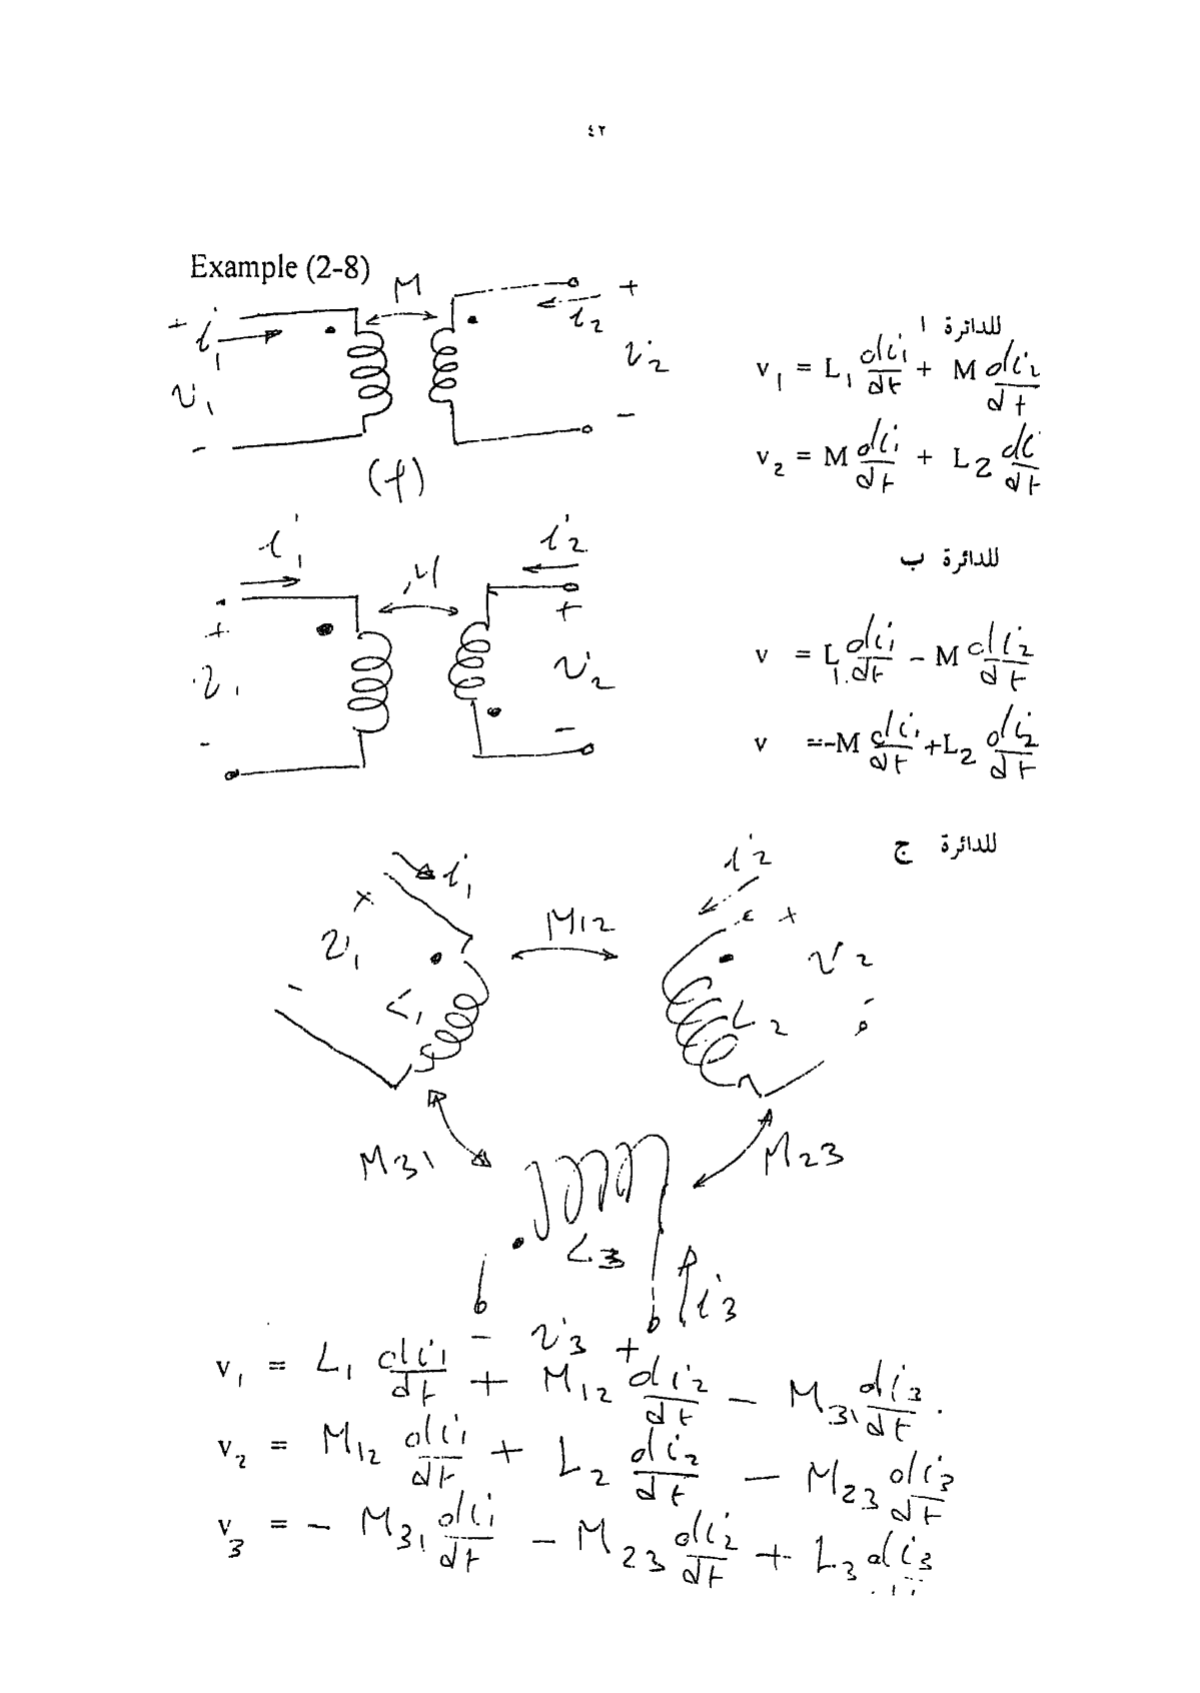 ٤٢
Example (2-8)
M
+ i₁
i₂ +
v₁
v₂
-
-
(أ)
للدائرة ا
v₁ = L₁ di₁/dt + M di₂/dt
v₂ = M di₁/dt + L₂ di/dt
i₁
i₂
M
+
+
v₁
v₂
-
-
للدائرة ب
v = L₁ di₁/dt - M di₂/dt
v =-M di₁/dt +L₂ di₂/dt
للدائرة ج
i₁
i₂
+
+
v₁
M12
v₂
-
-
L₁
L₂
M31
M23
L3
i3
- v3 +
v₁ = L₁ di₁/dt + M₁₂ di₂/dt - M₃₁ di₃/dt .
v₂ = M₁₂ di₁/dt + L₂ di₂/dt - M₂₃ di₃/dt
v₃ = - M₃₁ di₁/dt - M₂₃ di₂/dt + L₃ di₃